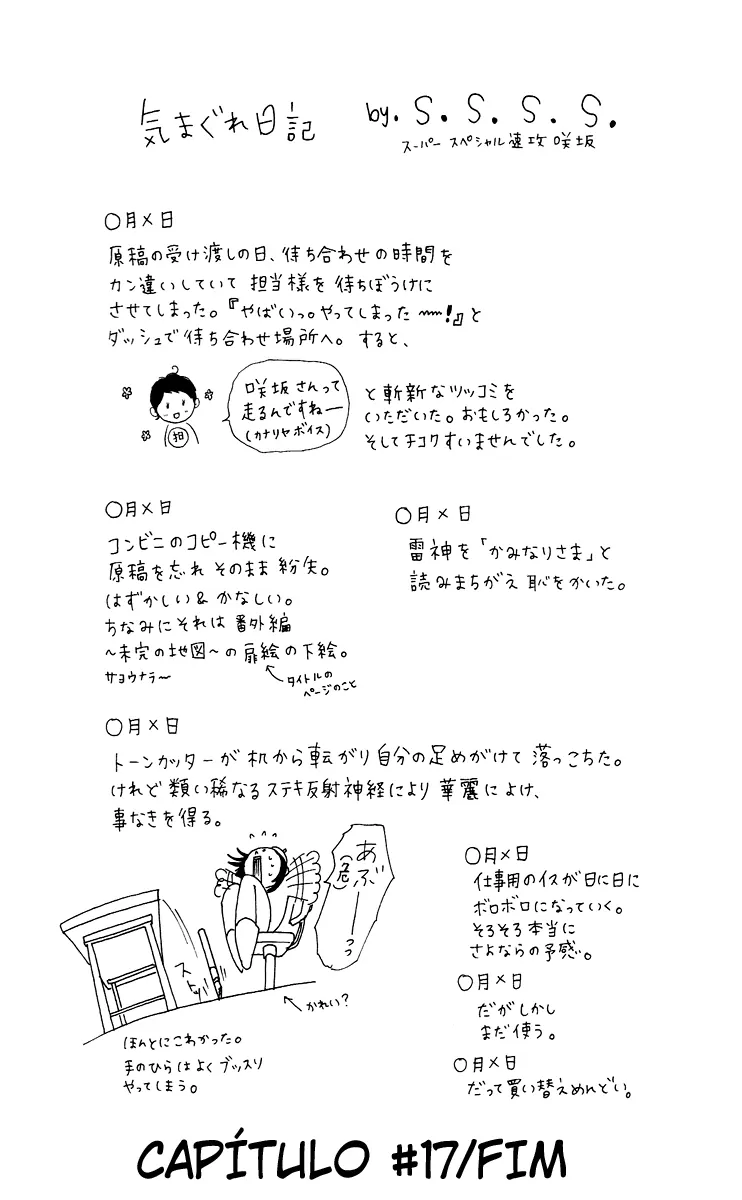 気まぐれ日記
by. S. S. S. S.
スーパー スペシャル速攻 咲坂
○月×日
原稿の受け渡しの日、待ち合わせの時間を
カン違いしていて 担当様を 待ちぼうけに
させてしまった。『やばいっ。やってしまった〜〜!』と
ダッシュで待ち合わせ場所へ。 すると、
担
咲坂さんって
走るんですねー
(カナリヤボイス)
と斬新なツッコミを
いただいた。おもしろかった。
そしてチコクすいませんでした。
○月×日
コンビニのコピー機に
原稿を忘れ そのまま 紛失。
はずかしい & かなしい。
ちなみにそれは 番外編
~未完の地図~の扉絵の下絵。
サヨウナラ〜
タイトルの
ページのこと
○月×日
雷神を「かみなりさま」と
読みまちがえ 恥をかいた。
○月×日
トーンカッターが机から転がり自分の足めがけて 落っこちた。
けれど 類い稀なるステキ反射神経により 華麗によけ、
事なきを得る。
あぶーっっ
(危)
ストッ
かれい?
ほんとにこわかった。
手のひらはよくブッスリ
やってしまう。
○月×日
仕事用のイスが日に日に
ボロボロになっていく。
そろそろ本当に
さよならの予感。
○月×日
だがしかし
まだ使う。
○月×日
だって買い替えめんどい。
CAPÍTULO #17/FIM